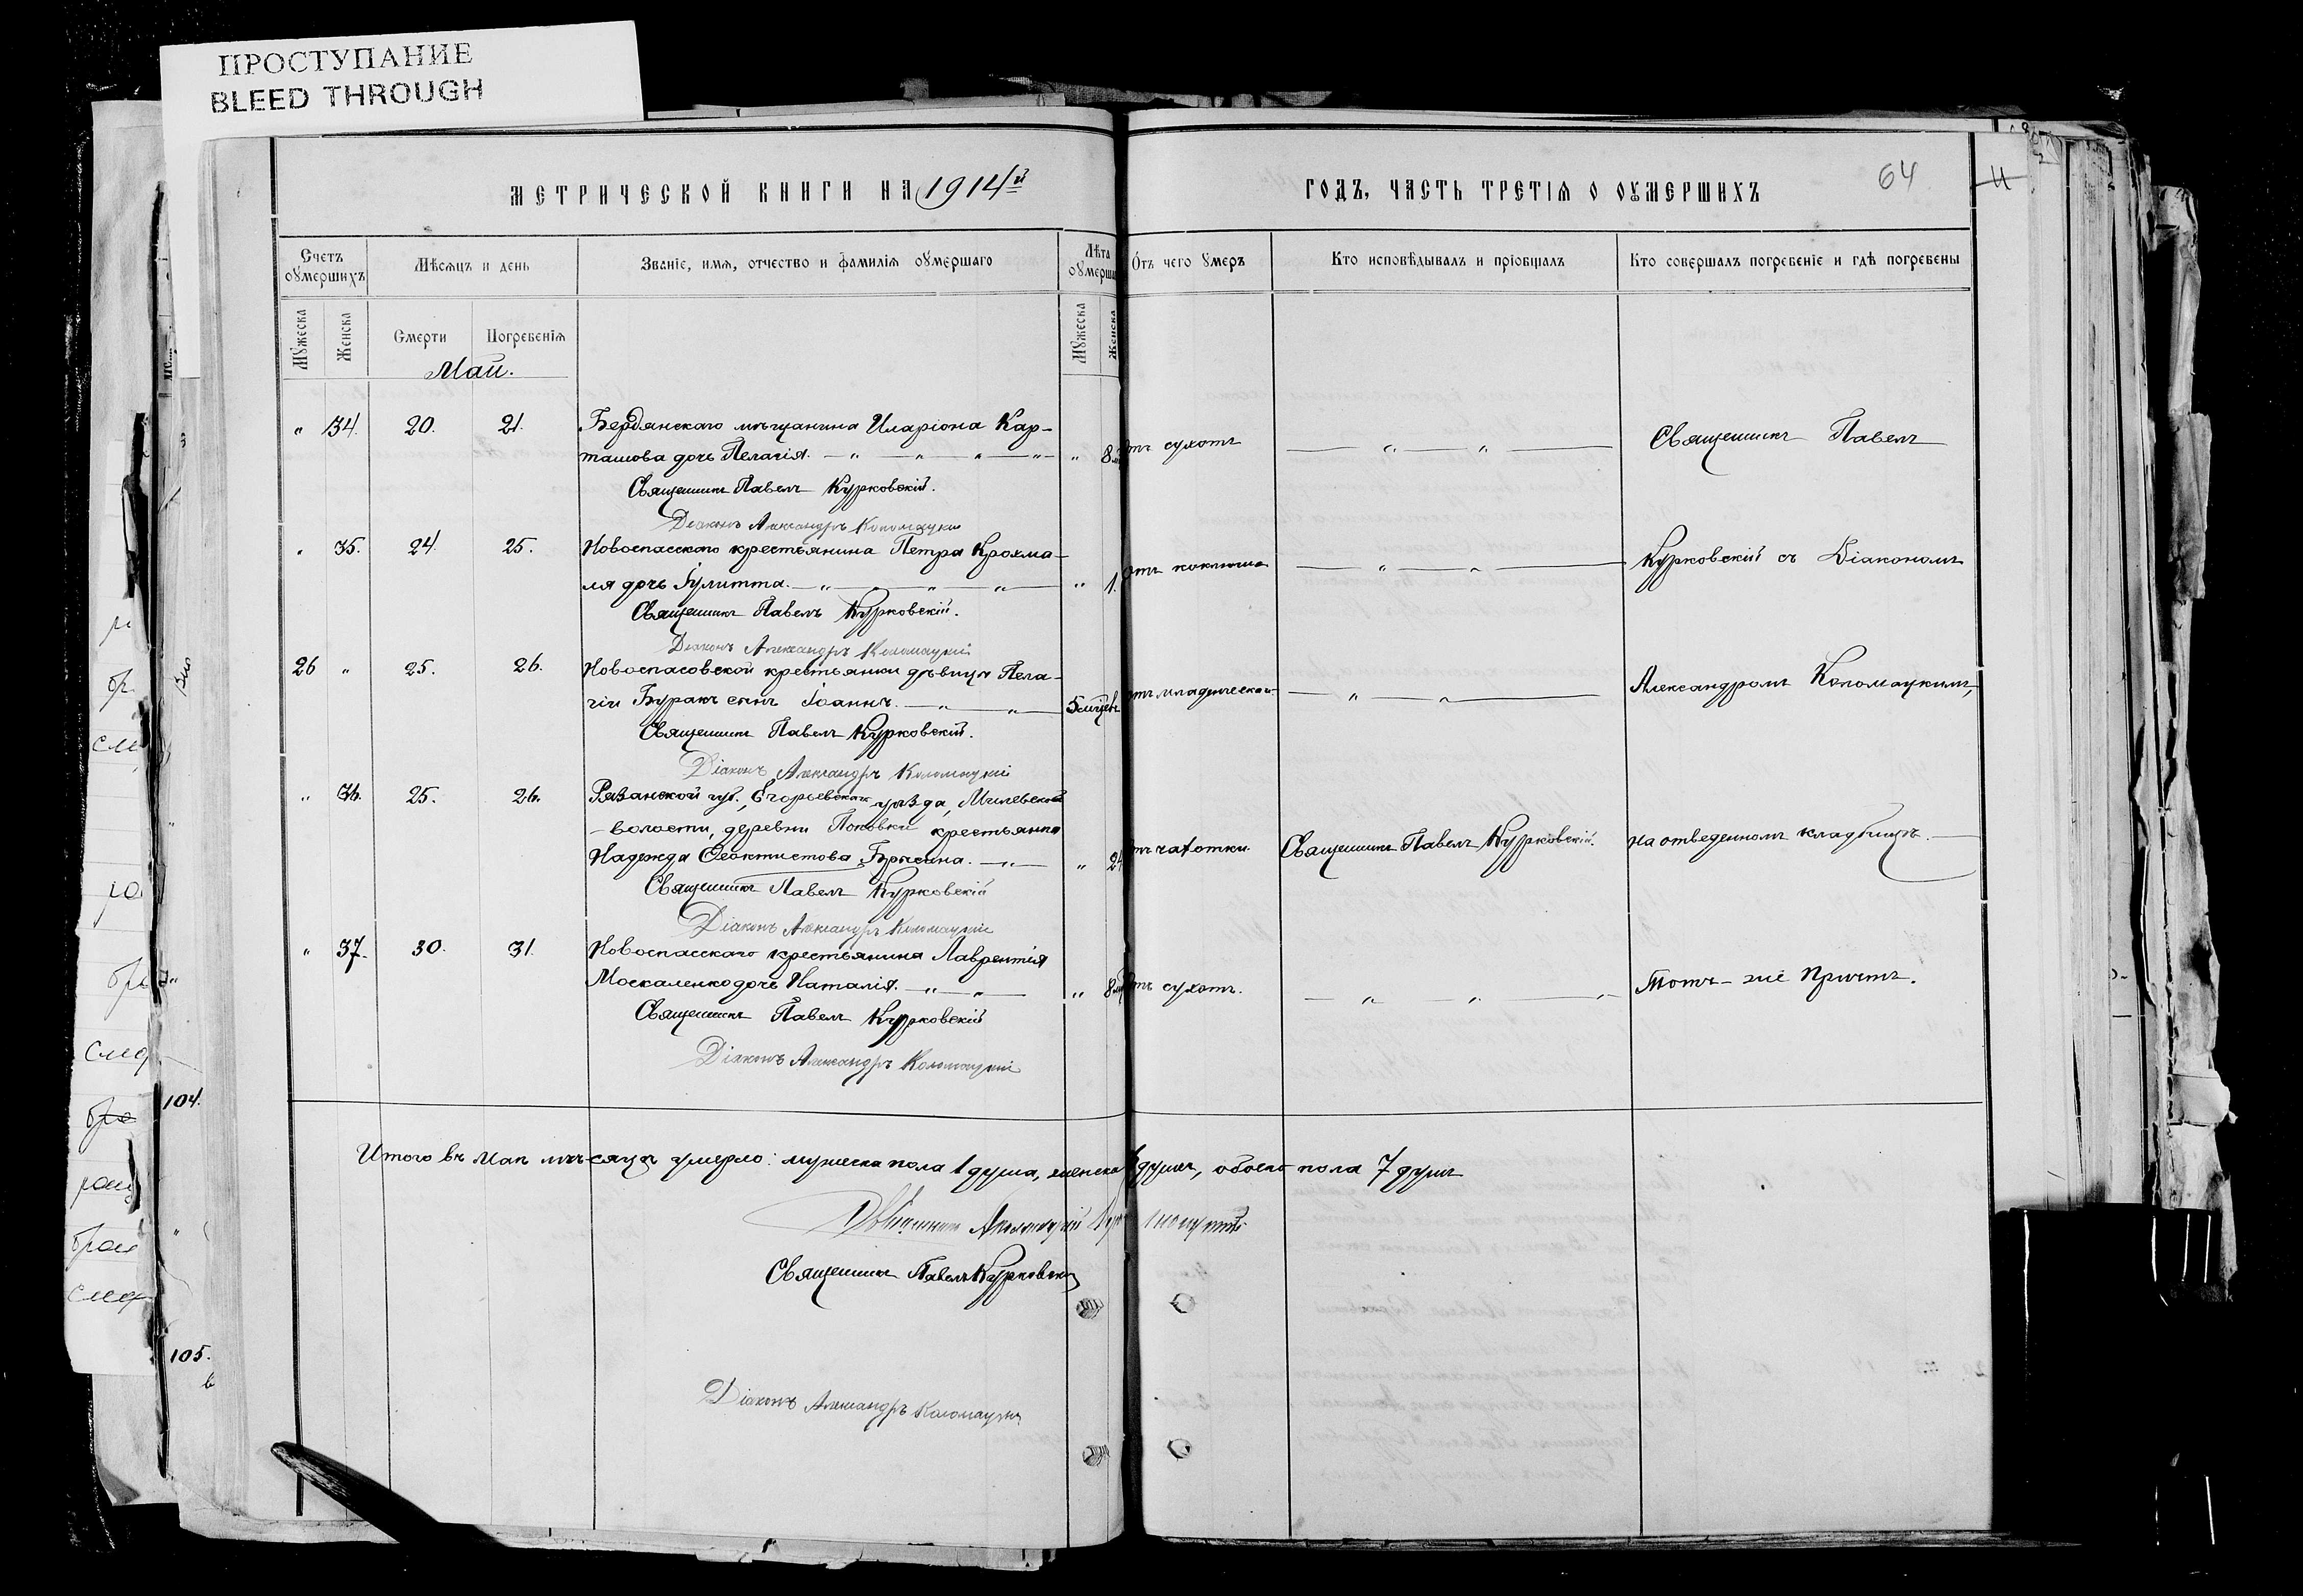 ПРОСТУПАНИЕ
BLEED THROUGH
МЕТРИЧЕСКОЙ КНИГИ НА 1914й
ГОДЪ, ЧАСТЬ ТРЕТІѦ О ОУМЕРШИХЪ
64
Счетъ оумершихъ
Мѣсѧцъ и день
Званіе, имѧ, отчество и фамиліѧ оумершаго
Лѣта
Ѿтъ чего умеръ
Кто исповѣдывалъ и пріобщалъ
Кто совершалъ погребеніе и гдѣ погребены
Мужеска
Женска
Смерти
Погребеніѧ
Мужеска
Женска
Май.
" 34. 20. 21. Бердянскаго мѣщанина Иларіона Кар-
ташова дочь Пелагія. " 8 отъ сухотъ
Священникъ Павелъ
Священникъ Павелъ Курковскій.
Діаконъ Александръ Коломацкій
" 35. 24. 25. Новоспасскаго крестьянина Петра Крохма-
ля дочь Іулитта. " 1. отъ коклюша
Курковскій съ Діакономъ
Священникъ Павелъ Курковскій.
Діаконъ Александръ Коломацкій
26 " 25. 26. Новоспасовской крестьянки дѣвицы Пела-
гіи Буракъ сынъ Іоаннъ. 5 отъ младенческой
Александромъ Коломацкимъ,
Священникъ Павелъ Курковскій.
Діаконъ Александръ Коломацкій
" 36. 25. 26. Рязанской губ., Егорьевскаго уѣзда,
волости, деревни крестьянка
Надежда Ѳеоктистова " 24 отъ чахотки.
Священникъ Павелъ Курковскій.
на отведенномъ кладбищѣ.
Священникъ Павелъ Курковскій
Діаконъ Александръ Коломацкій
" 37. 30. 31. Новоспасскаго крестьянина Лаврентія
Москаленко дочь Наталія. " 8 отъ сухотъ.
Тотъ-же Причтъ.
Священникъ Павелъ Курковскій
Діаконъ Александръ Коломацкій
Итого въ Маѣ мѣсяцѣ умерло: мужеска пола 1 душа, женска душъ, обоего пола 7 душъ
Священникъ Павелъ Курковскій
Діаконъ Александръ Коломацкій
104.
105.